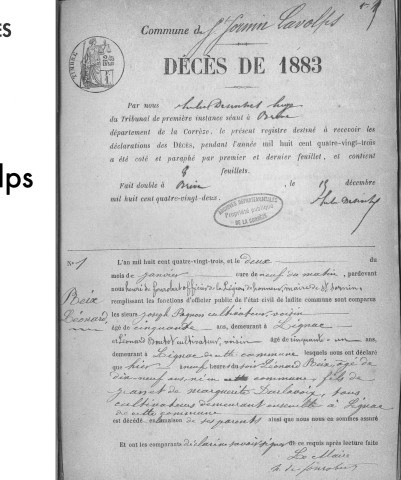 ES
lps
Commune de St Sornin Lavolps
TIMBRE
DÉCÈS DE 1883
Par nous juge
du Tribunal de première instance séant à Brive
département de la Corrèze, le présent registre destiné à recevoir les
déclarations des Décès, pendant l'année mil huit cent quatre-vingt-trois
a été coté et paraphé par premier et dernier feuillet, et contient
8 feuillets.
Fait double à Brive, le 15 décembre
mil huit cent quatre-vingt-deux.
ARCHIVES DÉPARTEMENTALES
Propriété publique
DE LA CORRÈZE
No 1
Beix
Léonard
L'an mil huit cent quatre-vingt-trois, et le deux du
mois de janvier heure de neuf du matin, pardevant
nous officier de la Légion d'honneur, maire de St Sornin
remplissant les fonctions d'officier public de l'état civil de ladite commune sont comparus
les sieurs Joseph cultivateur voisin
âgé de cinquante ans, demeurant à Lignac
et Léonard cultivateur, voisin âgé de cinquante un ans,
demeurant à Lignac de cette commune lesquels nous ont déclaré
que hier neuf heures du soir Léonard Beix, âgé de
dix neuf ans né en cette commune, fils de
et de Marguerite tous
cultivateurs demeurant ensemble à Lignac
de cette commune
est décédé en maison de ses parents ainsi que nous nous en sommes assuré
Et ont les comparants déclaré ne savoir signer de ce requis après lecture faite
Le Maire